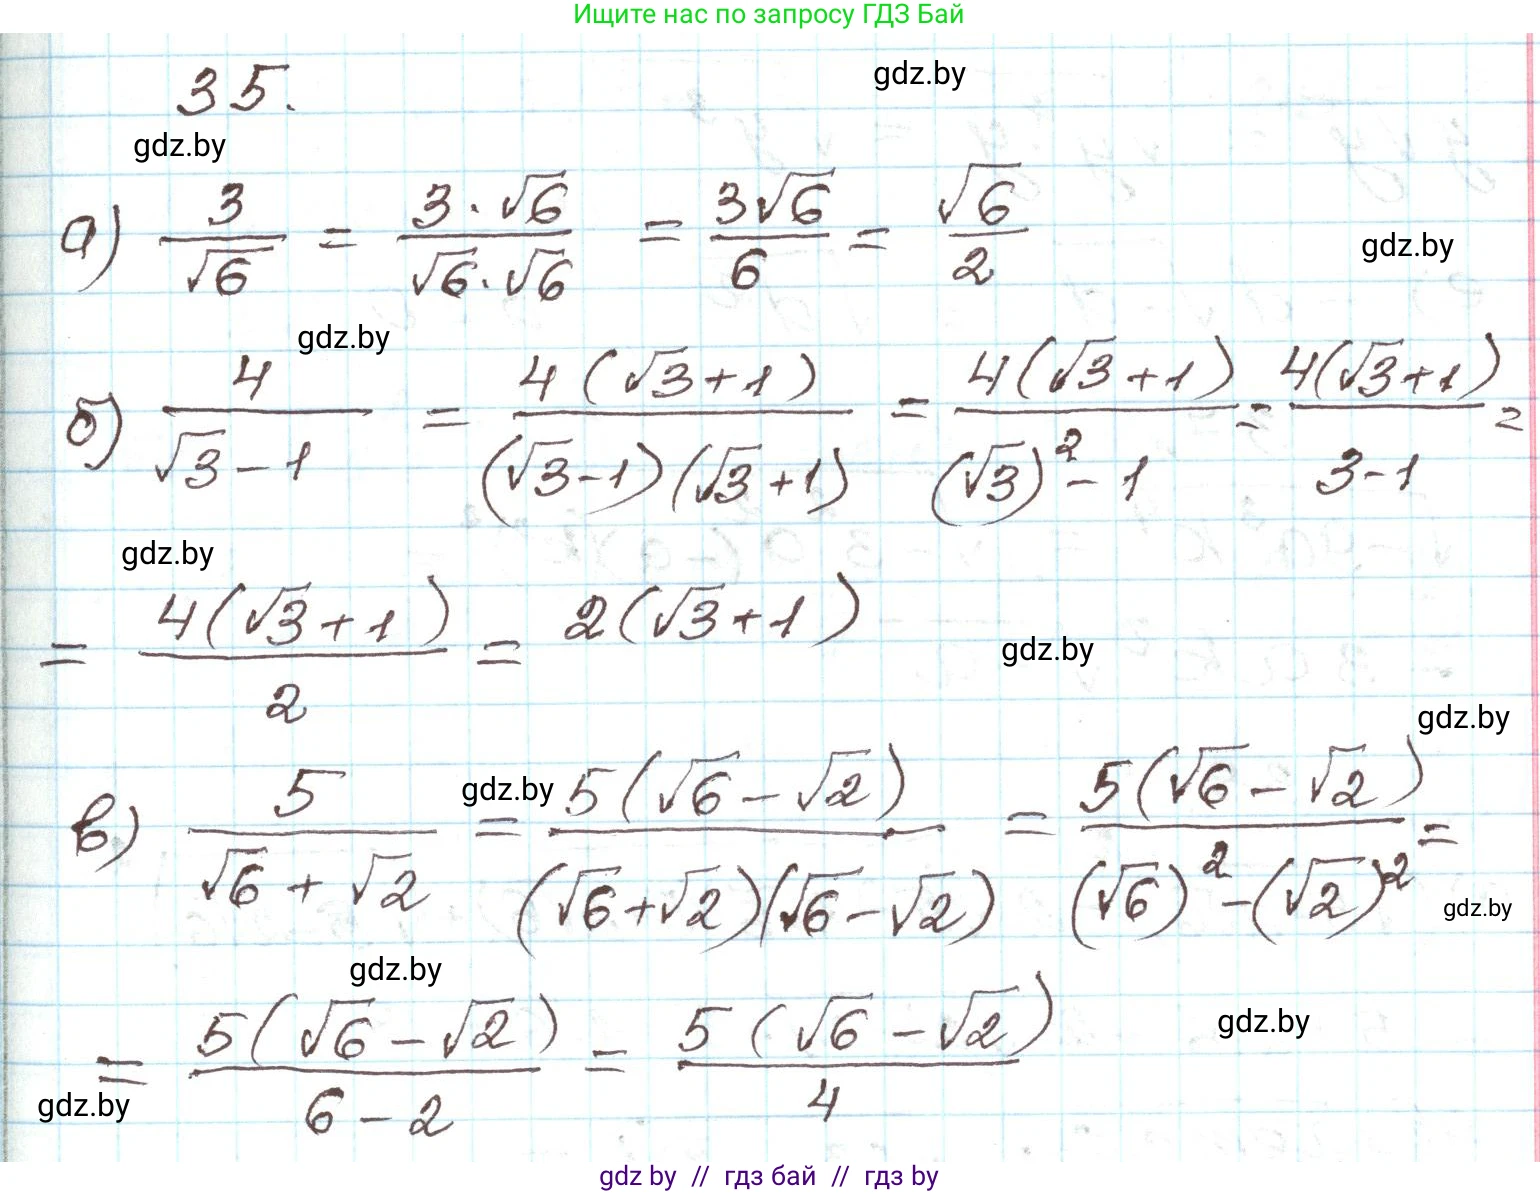 Ищите нас по запросу ГДЗ Бай
35.
gdz.by
gdz.by
а) 3/√6 = 3·√6/√6·√6 = 3√6/6 = √6/2
gdz.by
gdz.by
б) 4/√3-1 = 4(√3+1)/(√3-1)(√3+1) = 4(√3+1)/(√3)²-1 = 4(√3+1)/3-1 =
gdz.by
= 4(√3+1)/2 = 2(√3+1)
gdz.by
gdz.by
в) 5/√6+√2 = 5(√6-√2)/(√6+√2)(√6-√2) = 5(√6-√2)/(√6)²-(√2)² =
gdz.by
gdz.by
gdz.by
= 5(√6-√2)/6-2 = 5(√6-√2)/4
gdz.by
gdz.by
gdz by // гдз бай // гдз by